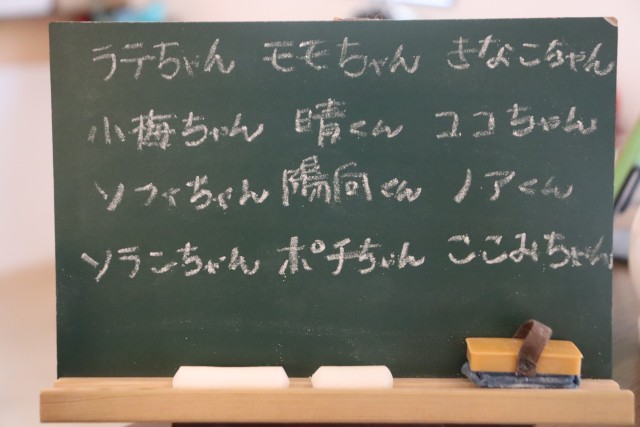 ラテちゃん モモちゃん きなこちゃん
小梅ちゃん 晴くん ココちゃん
ソフィちゃん 陽向くん ノアくん
ソランちゃん ポチちゃん ここみちゃん